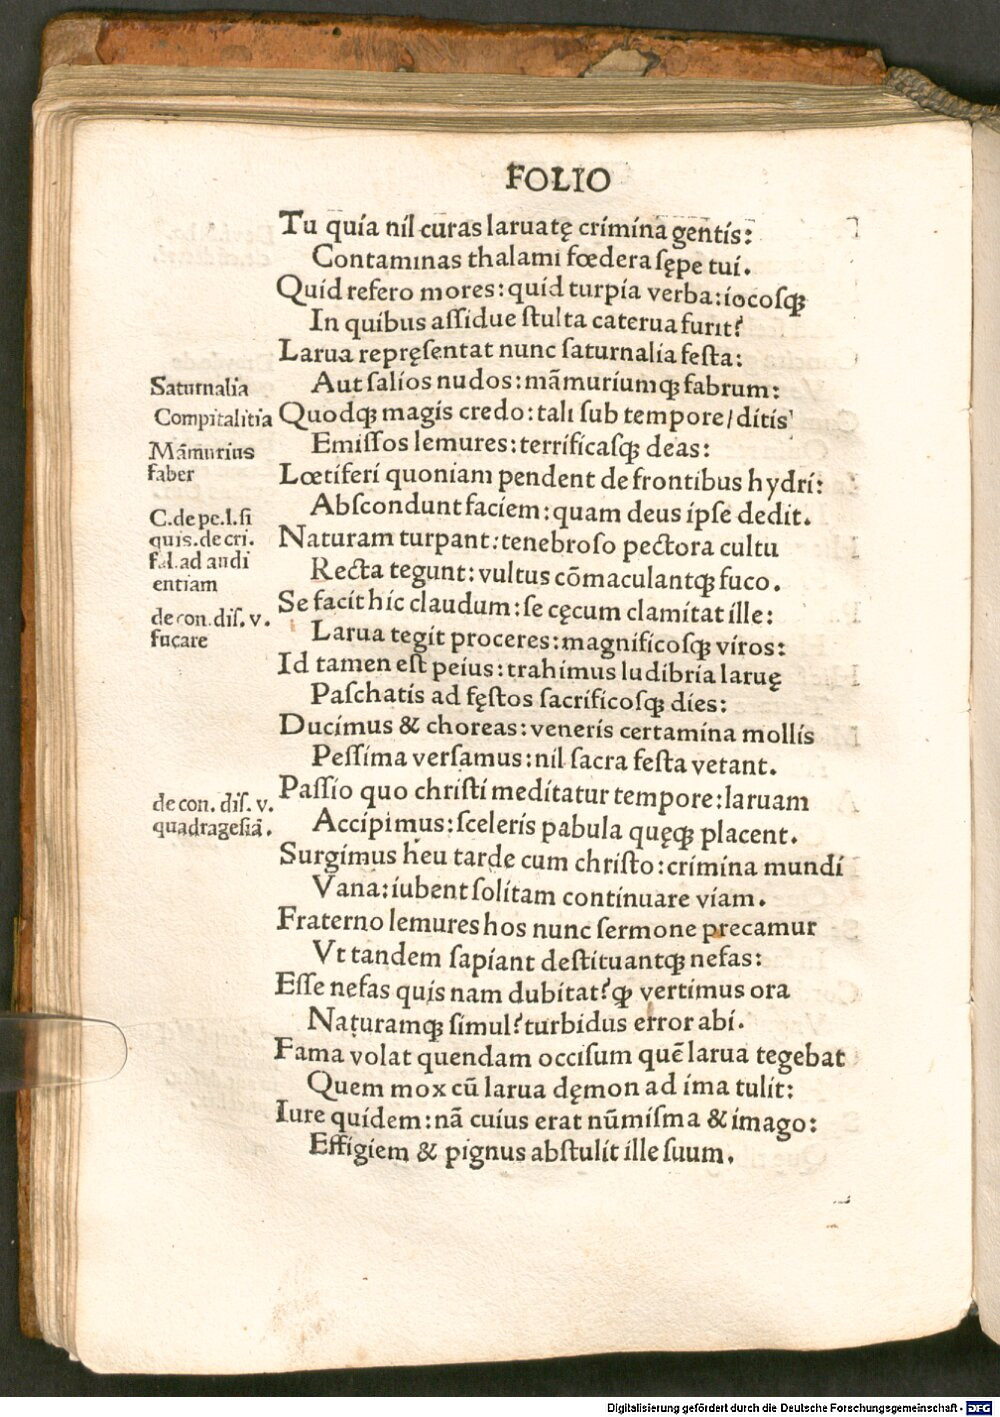 FOLIO
Tu quia nil curas laruatę crimina gentis:
Contaminas thalami fœdera sępe tui.
Quid refero mores: quid turpia verba: iocosqꝫ
In quibus assidue stulta caterua furit?
Larua repręsentat nunc saturnalia festa:
Saturnalia
Aut salios nudos: mãmuriumqꝫ fabrum:
Compitalitia
Quodqꝫ magis credo: tali sub tempore/ditis
Mãmurius
faber
Emissos lemures: terrificasqꝫ deas:
Lœtiferi quoniam pendent de frontibus hydri:
Abscondunt faciem: quam deus ipse dedit.
C. de pe. l. si
quis. de cri.
f. l. ad audi
entiam
Naturam turpant: tenebroso pectora cultu
Recta tegunt: vultus cõmaculantqꝫ fuco.
Se facit hic claudum: se cęcum clamitat ille:
de con. dis. v.
fucare
Larua tegit proceres: magnificosqꝫ viros:
Id tamen est peius: trahimus ludibria laruę
Paschatis ad fęstos sacrificosqꝫ dies:
Ducimus & choreas: veneris certamina mollis
Pessima versamus: nil sacra festa vetant.
Passio quo christi meditatur tempore: laruam
de con. dis. v.
quadragesiã.
Accipimus: sceleris pabula quęqꝫ placent.
Surgimus heu tarde cum christo: crimina mundi
Vana: iubent solitam continuare viam.
Fraterno lemures hos nunc sermone precamur
Vt tandem sapiant destituantqꝫ nefas:
Esse nefas quis nam dubitat? ꝙ vertimus ora
Naturamqꝫ simul? turbidus error abi.
Fama volat quendam occisum quẽ larua tegebat
Quem mox cũ larua dęmon ad ima tulit:
Iure quidem: nã cuius erat nũmisma & imago:
Effigiem & pignus abstulit ille suum.
Digitalisierung gefördert durch die Deutsche Forschungsgemeinschaft - DFG